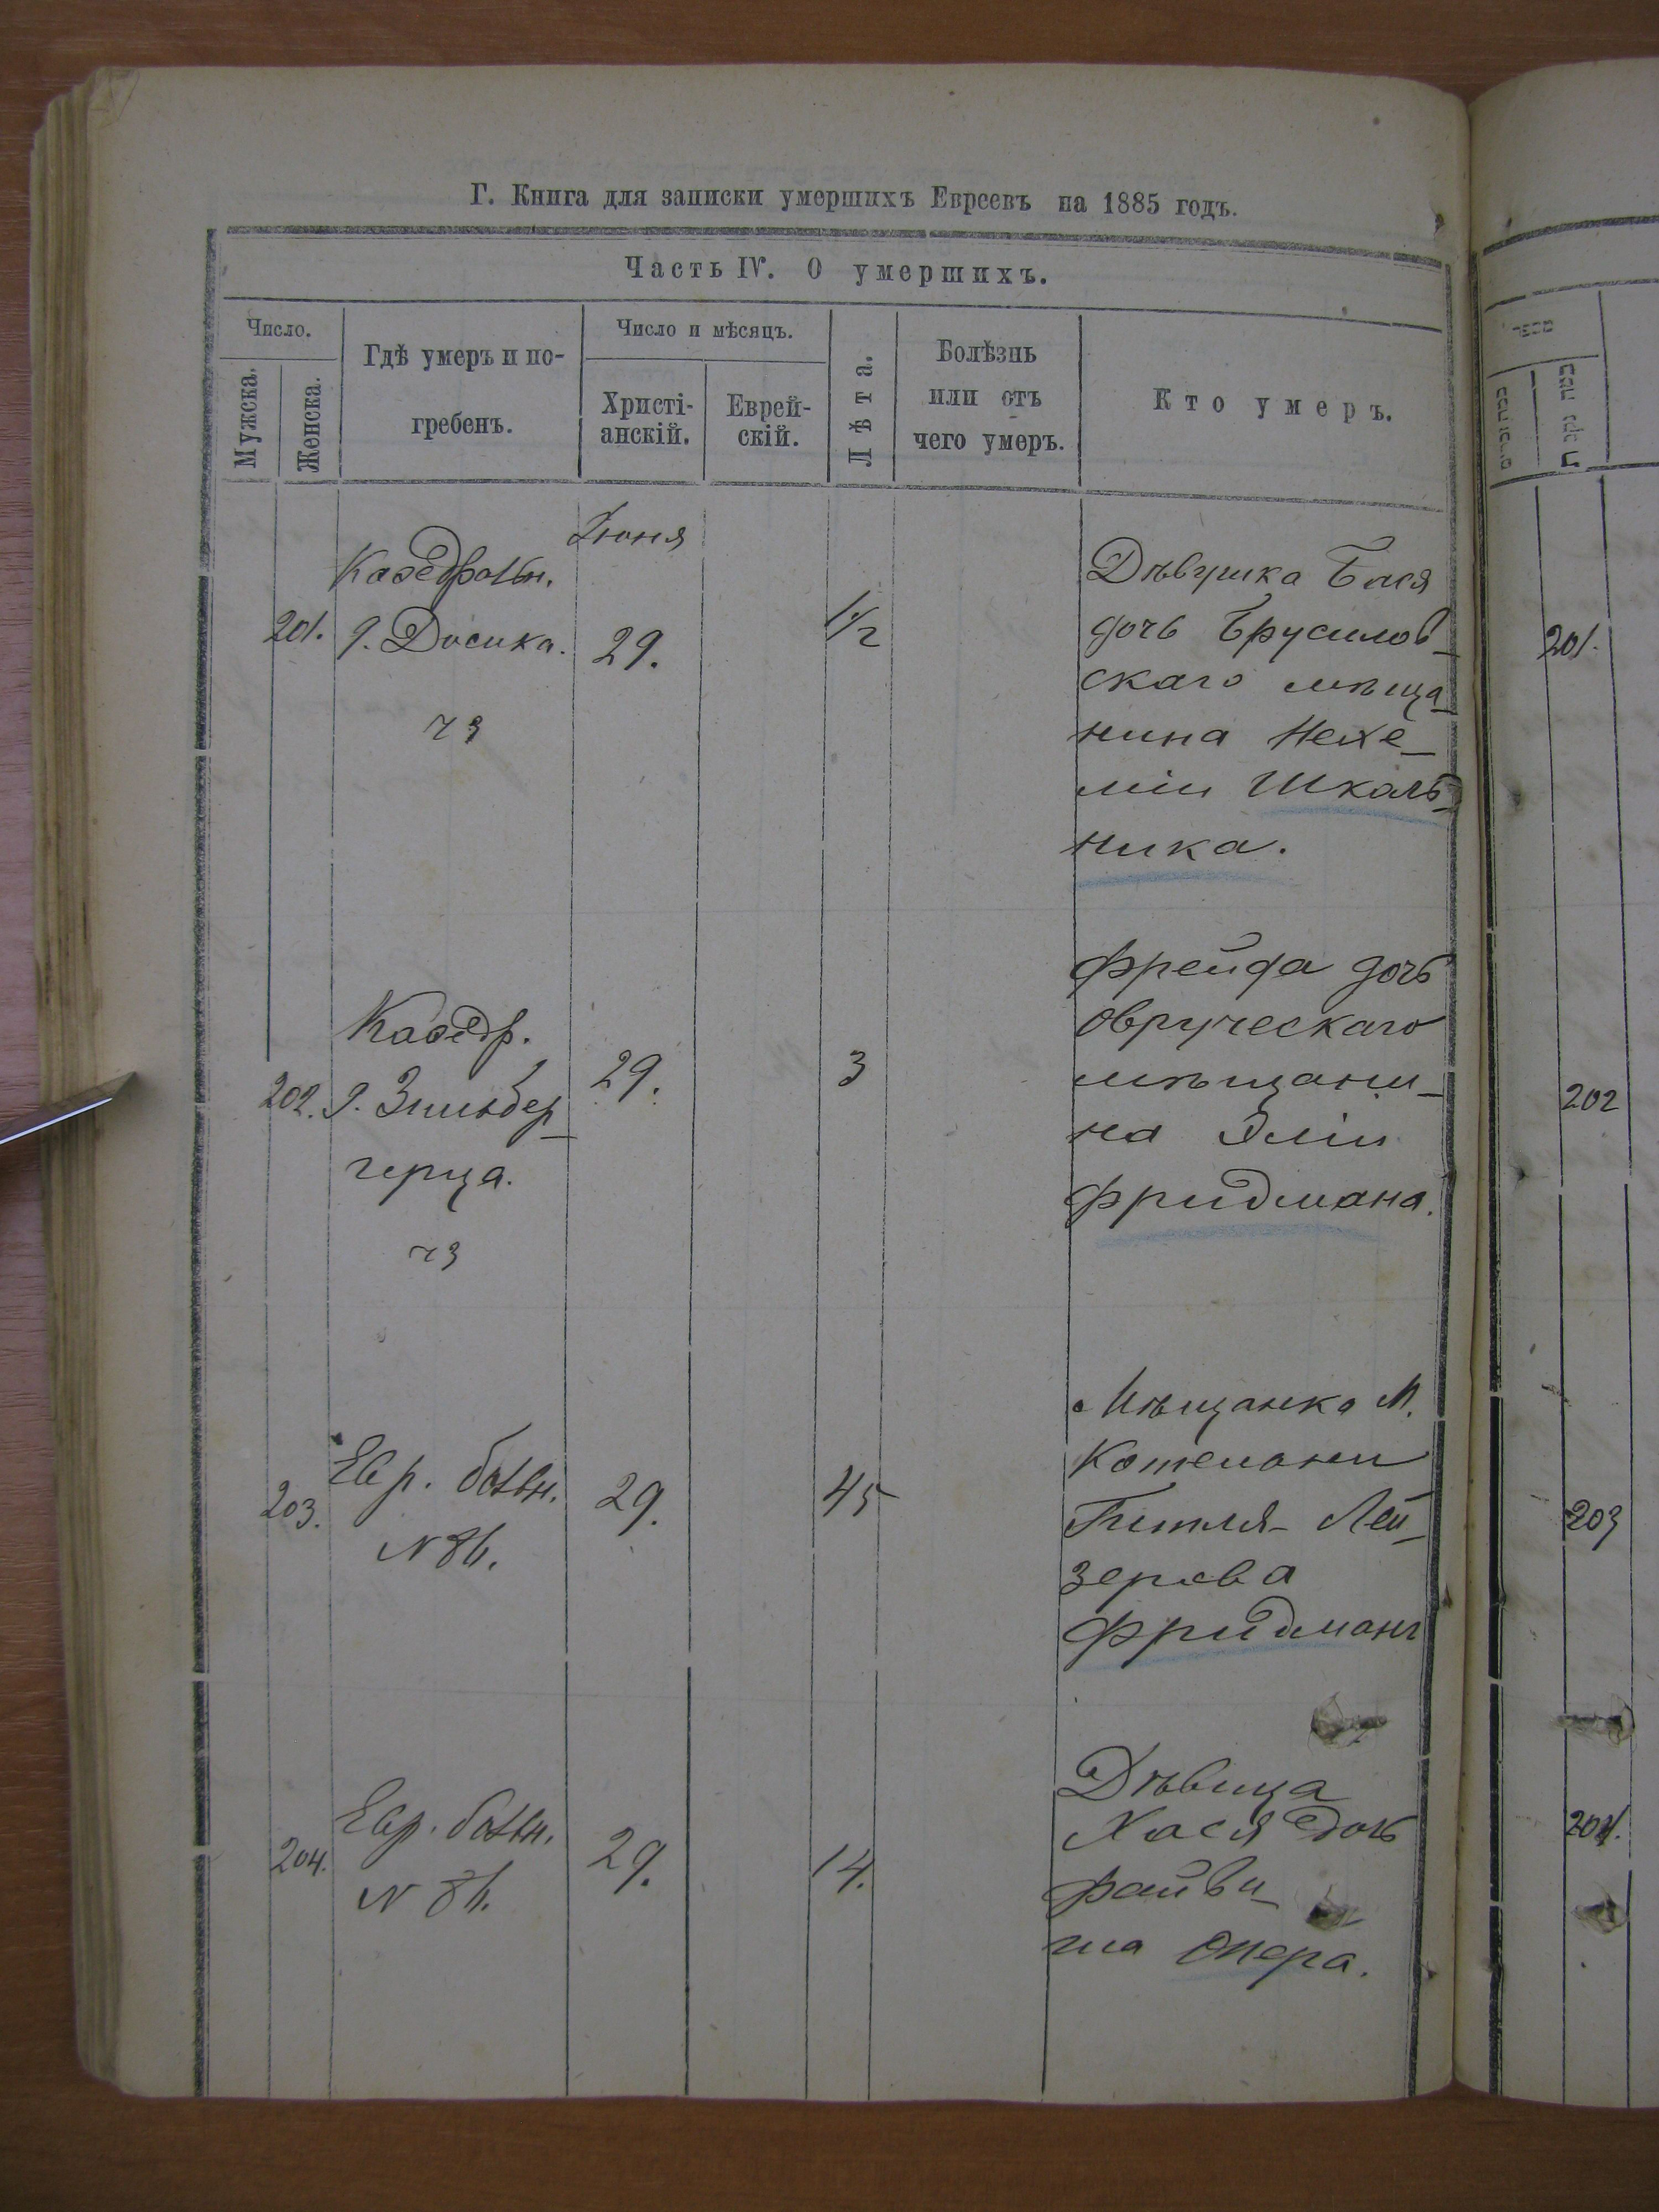 Г. Книга для записки умершихъ Евреевъ на 1885 годъ.
Часть IV. О умершихъ.
Число.
Мужска.
Женска.
Гдѣ умеръ и по-
гребенъ.
Число и мѣсяцъ.
Христі-
анскій.
Еврей-
скій.
Лѣта.
Болѣзнь
или отъ
чего умеръ.
Кто умеръ.
Іюня
201.
Каѳедральн.
д. Досика.
ч 3
29.
1 1/2
Дѣвушка Бася
дочь Брусилов-
скаго мѣща-
нина Нехе-
міи Школь-
ника.
202.
Каѳедр.
д. Зильбер-
герца.
ч 3
29.
3
Фрейда дочь
Овручскаго
мѣщани-
на Эліи
Фридмана.
203.
Евр. больн.
N 86.
29.
45
Мѣщанка М.
Котельни
Лей-
зерова
Фридманъ
204.
Евр. больн.
N 86.
29.
14.
Дѣвица
Хася дочь
Файви-
ша Опера.
201.
202
203
204.